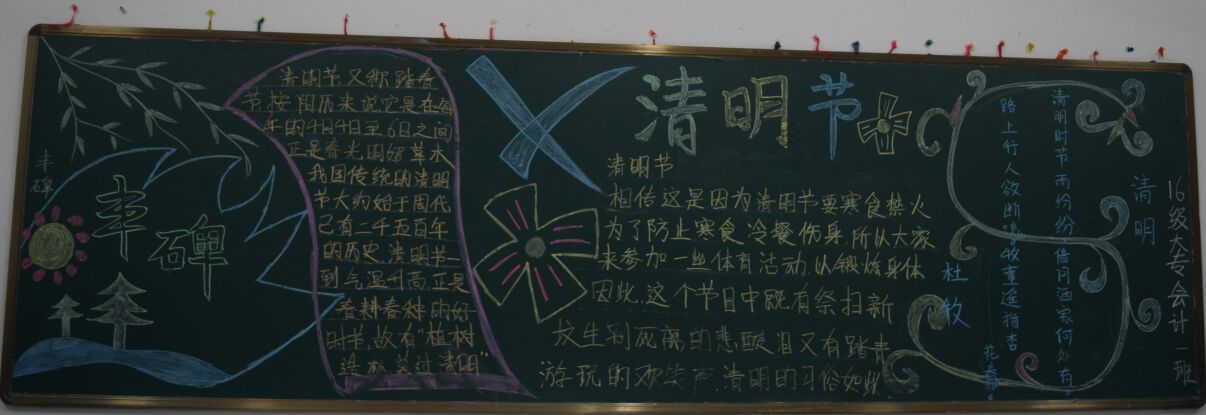 丰碑
丰碑
清明节又称踏春
节按阳历来说它是在每
年的4月4日至6日之间
正是春光明媚草木
我国传统的清明
节大约始于周代
已有二千五百年
的历史,清明节一
到气温升高,正是
春耕春种的好
时节,故有"植树
造林莫过清明"
清明节
清明节
相传这是因为清明节要寒食禁火
为了防止寒食冷餐伤身,所以大家
来参加一些体育活动,以锻炼身体
因此,这个节日中既有祭扫新
坟生别死离的悲酸泪又有踏青
游玩的欢笑声,清明的习俗如此
清明
杜牧
清明时节雨纷纷,借问酒家何处有,
路上行人欲断魂。牧童遥指杏
花春。
16级大专会计一班